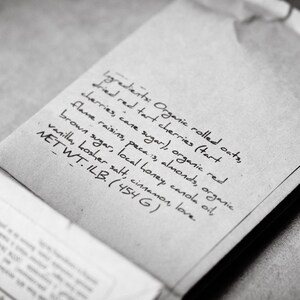 Ingredients: Organic rolled oats,
dried red tart cherries (tart
cherries, cane sugar), organic red
flame raisins, pecans, almonds, organic
brown sugar, local honey, canola oil,
vanilla, kosher salt, cinnamon, love.
NET WT. 1LB. (454G)